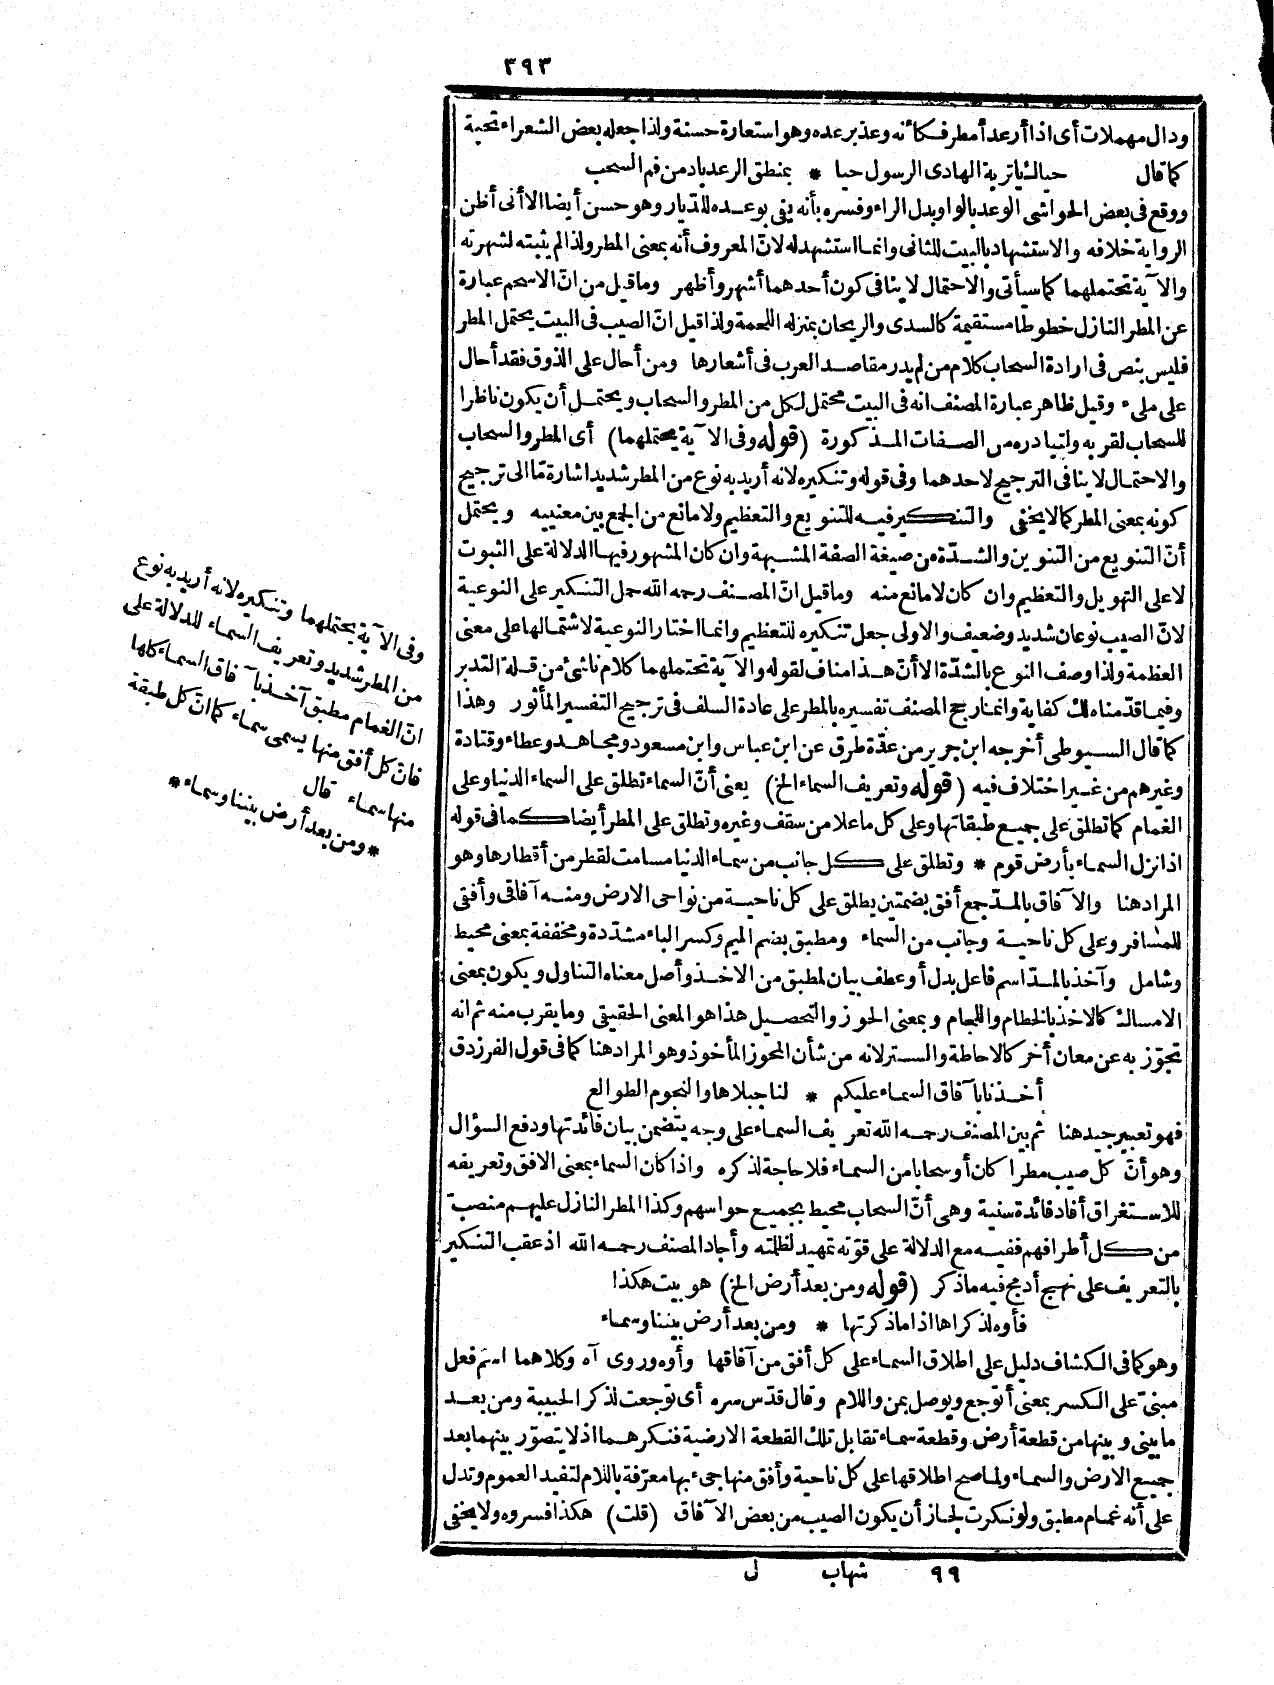 ٣٩٣
ودال مهملات أى اذا أرعد أمطر فكأنه وعد برعده وهو استعارة حسنة ولذا جعله بعض الشعراء تحية
كما قال حياك يا تربة الهادى الرسول حيا * بمنطق الرعد باد من فم السحب
ووقع فى بعض الحواشى الوعد بالواو بدل الراء وفسره بأنه يفى بوعده للديار وهو حسن أيضا الا أنى أظن
الرواية خلافه والاستشهاد بالبيت للثانى وانما استشهد له لانّ المعروف أنه بمعنى المطر ولذا لم يثبته لشهرته
والآية تحتملهما كما سيأتى والاحتمال لا ينافى كون أحدهما أشهر وأظهر وما قيل من انّ الاسحم عبارة
عن المطر النازل خطوطا مستقيمة كالسدى والريحان بمنزله اللحمة ولذا قيل انّ الصيب فى البيت يحتمل المطر
فليس بنص فى ارادة السحاب كلام من لم يدر مقاصد العرب فى أشعارها ومن أحال على الذوق فقد أحال
على ملىء وقيل ظاهر عبارة المصنف انه فى البيت محتمل لكل من المطر والسحاب ويحتمل أن يكون ناظرا
للسحاب لقربه ولتبادره من الصفات المذكورة (قوله وفى الآية يحتملهما) أى المطر والسحاب
والاحتمال لا ينافى الترجيح لاحدهما وفى قوله وتنكيره لانه أريد به نوع من المطر شديد اشارة مّا الى ترجيح
كونه بمعنى المطر كما لا يخفى والتنكير فيه للتنويع والتعظيم ولا مانع من الجمع بين معنييه ويحتمل
أنّ التنويع من التنوين والشدّة من صيغة الصفة المشبهة وان كان المشهور فيها الدلالة على الثبوت
لا على التهويل والتعظيم وان كان لا مانع منه وما قيل انّ المصنف رحمه الله حمل التنكير على النوعية
لانّ الصيب نوعان شديد وضعيف والاولى جعل تنكيره للتعظيم وانما اختار النوعية لاشتمالها على معنى
العظمة ولذا وصف النوع بالشدّة الا أنّ هذا مناف لقوله والآية تحتملهما كلام ناشئ من قلة التدبر
وفيما قدّمناه لك كفاية وانما رجح المصنف تفسيره بالمطر على عادة السلف فى ترجيح التفسير المأثور وهذا
كما قال السيوطى أخرجه ابن جرير من عدّة طرق عن ابن عباس وابن مسعود ومجاهد وعطاء وقتادة
وغيرهم من غير اختلاف فيه (قوله وتعريف السماء الخ) يعنى أنّ السماء تطلق على السماء الدنيا وعلى
الغمام كما تطلق على جميع طبقاتها وعلى كل ما علا من سقف وغيره وتطلق على المطر أيضا كما فى قوله
اذا نزل السماء بأرض قوم * وتطلق على كل جانب من سماء الدنيا مسامت لقطر من أقطارها وهو
المراد هنا والآفاق بالمدّ جمع أفق بضمتين يطلق على كل ناحية من نواحى الارض ومنه آفاقى وأفقى
للمسافر وعلى كل ناحية وجانب من السماء ومطبق بضم الميم وكسر الباء مشدّدة ومخففة بمعنى محيط
وشامل وآخذ بالمدّ اسم فاعل بدل أو عطف بيان لمطبق من الاخذ وأصل معناه التناول ويكون بمعنى
الامساك كالاخذ بالخطام واللجام وبمعنى الحوز والتحصيل هذا هو المعنى الحقيقى وما يقرب منه ثم انه
تجوّز به عن معان أخر كالاحاطة والستر لانه من شأن المحوز المأخوذ وهو المراد هنا كما فى قول الفرزدق
أخذنا بآفاق السماء عليكم * لنا جبلاها والنجوم الطوالع
فهو تعبير جيد هنا ثم بين المصنف رحمه الله تعريف السماء على وجه يتضمن بيان فائدتها ودفع السؤال
وهو أنّ كل صيب مطرا كان أو سحابا من السماء فلا حاجة لذكره واذا كان السماء بمعنى الافق وتعريفه
للاستغراق أفاد فائدة سنية وهى أنّ السحاب محيط بجميع حواسهم وكذا المطر النازل عليهم منصبّ
من كل أطرافهم ففيه مع الدلالة على قوّته تمهيد لظلمته وأجاد المصنف رحمه الله اذ عقب التنكير
بالتعريف على نهج أدمج فيه ما ذكر (قوله ومن بعد أرض الخ) هو بيت هكذا
فأوه لذكراها اذا ما ذكرتها * ومن بعد أرض بيننا وسماء
وهو كما فى الكشاف دليل على اطلاق السماء على كل أفق من آفاقها وأوه وروى آه وكلاهما اسم فعل
مبنىّ على الكسر بمعنى أتوجع ويوصل بمن واللام وقال قدّس سره أى توجعت لذكر الحبيبة ومن بعد
ما بينى وبينها من قطعة أرض وقطعة سماء تقابل تلك القطعة الارضية فنكرهما اذ لا يتصوّر بينهما بعد
جميع الارض والسماء ولما صح اطلاقها على كل ناحية وأفق منها جىء بها معرّفة باللام لتفيد العموم وتدل
على أنه غمام مطبق ولو نكرت لجاز أن يكون الصيب من بعض الآفاق (قلت) هكذا فسروه ولا يخفى
وفى الآية يحتملهما وتنكيره لانه أريد به نوع
من المطر شديد وتعريف السماء للدلالة على
انّ الغمام مطبق آخذ بآفاق السماء كلها
فانّ كل أفق منها يسمى سماء كما انّ كل طبقة
منها سماء قال
* ومن بعد أرض بيننا وسماء *
٩٩ شهاب ل